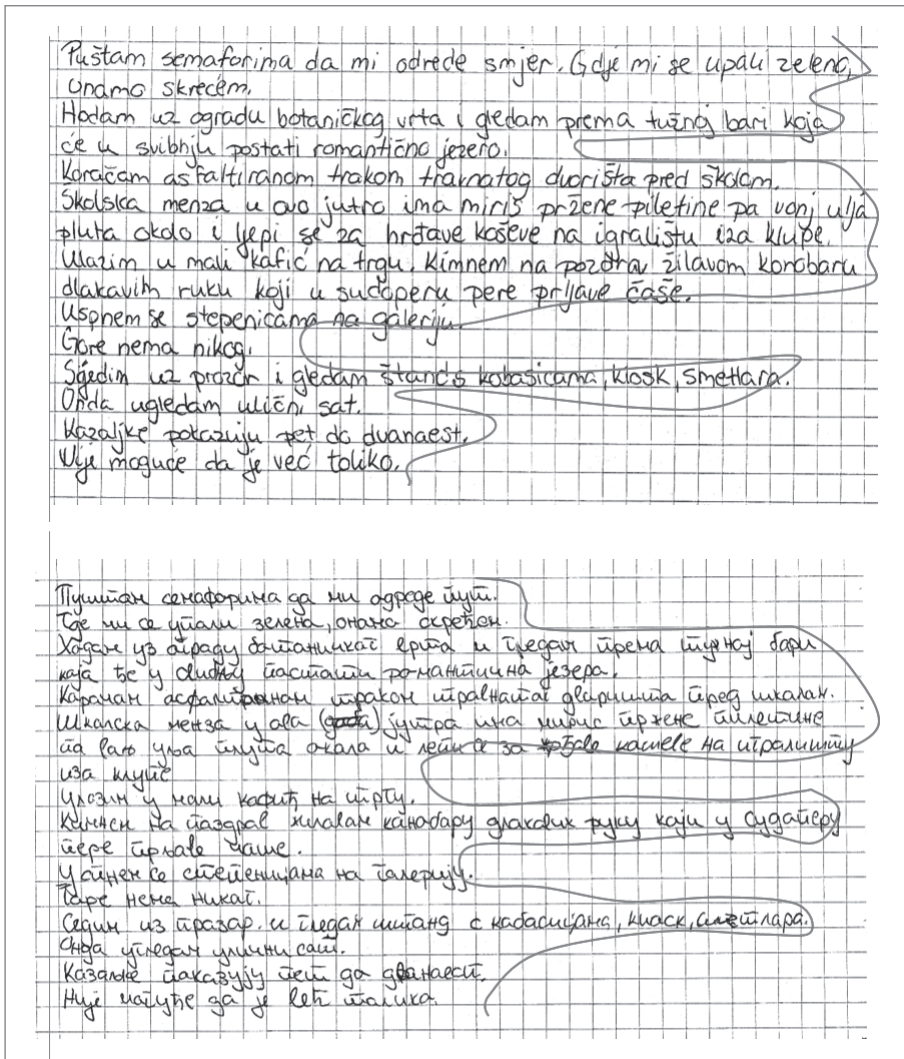 Puštam semaforima da mi odrede smjer. Gdje mi se upali zeleno,
onamo skrećem.
Hodam uz ogradu botaničkog vrta i gledam prema tužnoj bari koja
će u svibnju postati romantično jezero.
Koračam asfaltiranom trakom travnatog dvorišta pred školom.
Školska menza u ovo jutro ima miriš pržene piletine pa vonj ulja
pluta okolo i ljepi se za hrđave koševe na igralištu iza klupe.
Ulazim u mali kafić na trgu. Kimnem na pozdrav žilavom konobaru
dlakavih ruku koji u sudoperu pere prljave čaše.
Uspnem se stepenicama na galeriju.
Gore nema nikog.
Sjedim uz prozor i gledam štand s kobasicama, kiosk, smetlara.
Onda ugledam ulični sat.
Kazaljke pokazuju pet do dvanaest.
Nije moguće da je već toliko.
Пуштам семафорима да ми одреде пут.
Где ми се упали зелена, онама скрећем.
Ходам уз аграду ботаникаг врта и гледам према тужнај бари
каја ће у постати романтична језера.
Карачам траком травнатаг дваришта пред шкалам.
Шкалска менза у ава јутра има мирис пржене пилетине
па вањ уља плута акала и лепи се за кашеве на игралишту
иза клупе
Улазим у мали кафић на тргу.
Кимнем на паздрав жилавам канабару руку каји у судаперу
пере прлаве чаше.
Успнем се степеницама на галерију.
Гаре нема никаг.
Седим из празар. и гледам штанд с кабасицама, киаск, сметлара.
Онда угледам улични сат.
Казалке паказују пет да дванаест.
Није магуће да је већ талика.